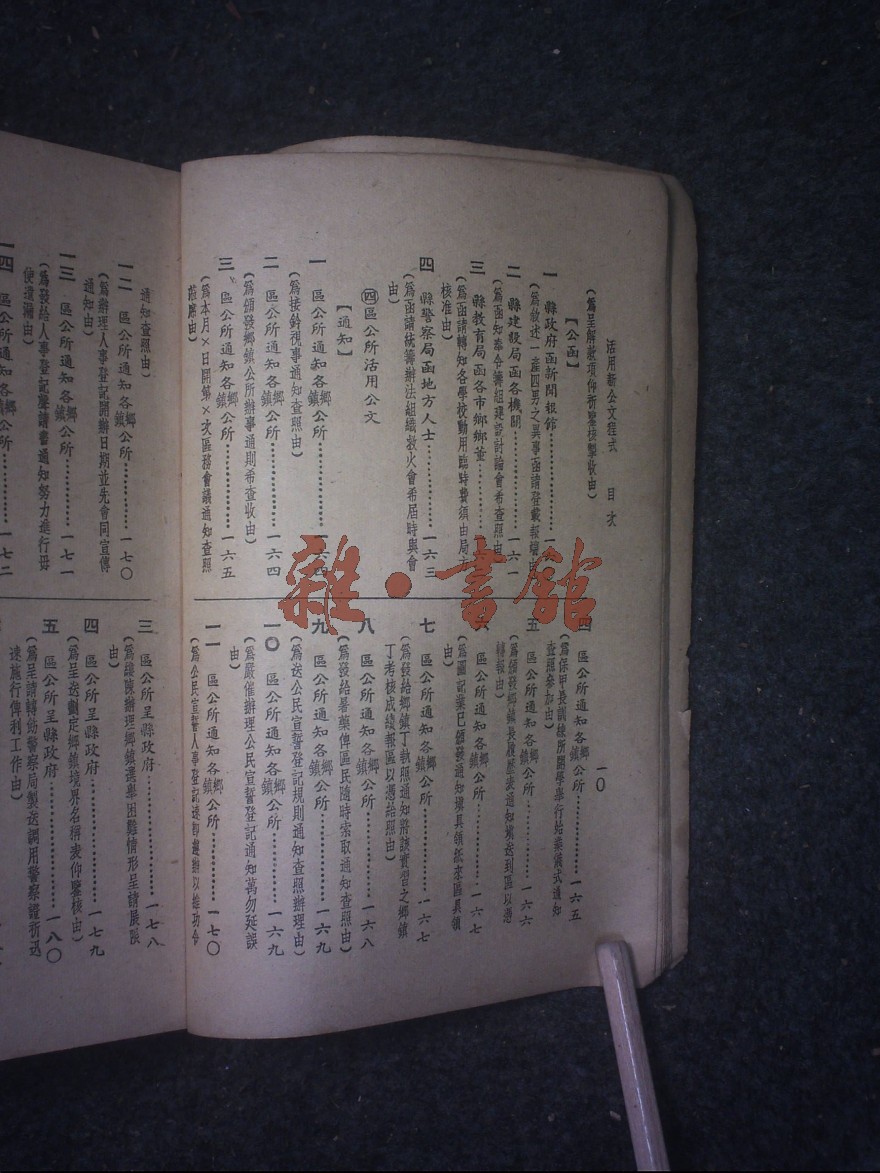 活用新公文程式　目次　一〇
(為呈解歀項仰祈鑒核掣收由)
【公函】
一　縣政府函新聞報館
(為敘述一產四男之異事函請登載報端由
二　縣建設局函各機關……一六一
(為函知奉令籌組建設討論會希查照由
三　縣教育局函各市鄉鄉董
(為函請轉知各學校動用臨時費須由局方
核准由)
四　縣警察局函地方人士……一六三
(為函請統籌辦法組織救火會希屆時與會
由)
㈣區公所活用公文
【通知】
一　區公所通知各鄉鎮公所……一六四
(為接鈐視事通知查照由)
二　區公所通知各鄉鎮公所……一六四
(為頒發鄉鎮公所辦事通則希查收由)
三　區公所通知各鄉鎮公所……一六五
(為本月×日開第×次區務會議通知查照
蒞席由)
四　區公所通知各鄉鎮公所……一六五
(為保甲長訓練所開學舉行始業儀式通知
查照參加由)
五　區公所通知各鄉鎮公所……一六六
(為頒發鄉鎮長履歷表通知填送到區以憑
轉報由)
六　區公所通知各鄉鎮公所……一六七
(為圖記業已頒發通知填具領紙來區具領
由)
七　區公所通知各鄉鎮公所……一六七
(為發給鄉鎮丁執照通知將該實習之鄉鎮
丁考核成績報區以憑給照由)
八　區公所通知各鄉鎮公所……一六八
(為發給暑藥俾區民隨時索取通知查照由)
九　區公所通知各鄉鎮公所……一六九
(為送公民宣誓登記規則通知查照辦理由)
一〇　區公所通知各鄉鎮公所……一六九
(為嚴催辦理公民宣誓登記通知萬勿延誤
由)
一一　區公所通知各鄉鎮公所……一七〇
(為公民宣誓人事登記速即遵辦以維功令
通知查照由)
一二　區公所通知各鄉鎮公所……一七〇
(為辦理人事登記開辦日期並先會同宣傳
通知由)
一三　區公所通知各鄉鎮公所……一七一
(為發給人事登記聲請書通知努力進行毋
使遺漏由)
一四　區公所通知各鄉鎮公所……一七二
三　區公所呈縣政府……一七八
(為縷陳辦理鄉鎮選舉困難情形呈請展限
由)
四　區公所呈縣政府……一七九
(為呈送劃定鄉鎮境界名稱表仰鑒核由)
五　區公所呈縣政府……一八〇
(為呈請轉飭警察局製送調用警察證祈迅
速施行俾利工作由)
雜·書館